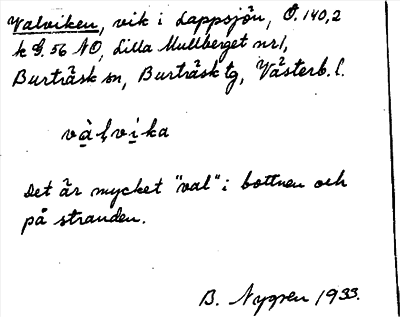 Valviken, vik i Lappsjön, Ö. 140,2
k G. 56 NO, Lilla Mullberget nr 1,
Burträsk sn, Burträsk tg, Västerb. l.
vàḷvi̱ka
Det är mycket "val" i bottnen och
på stranden.
B. Nygren 1933.